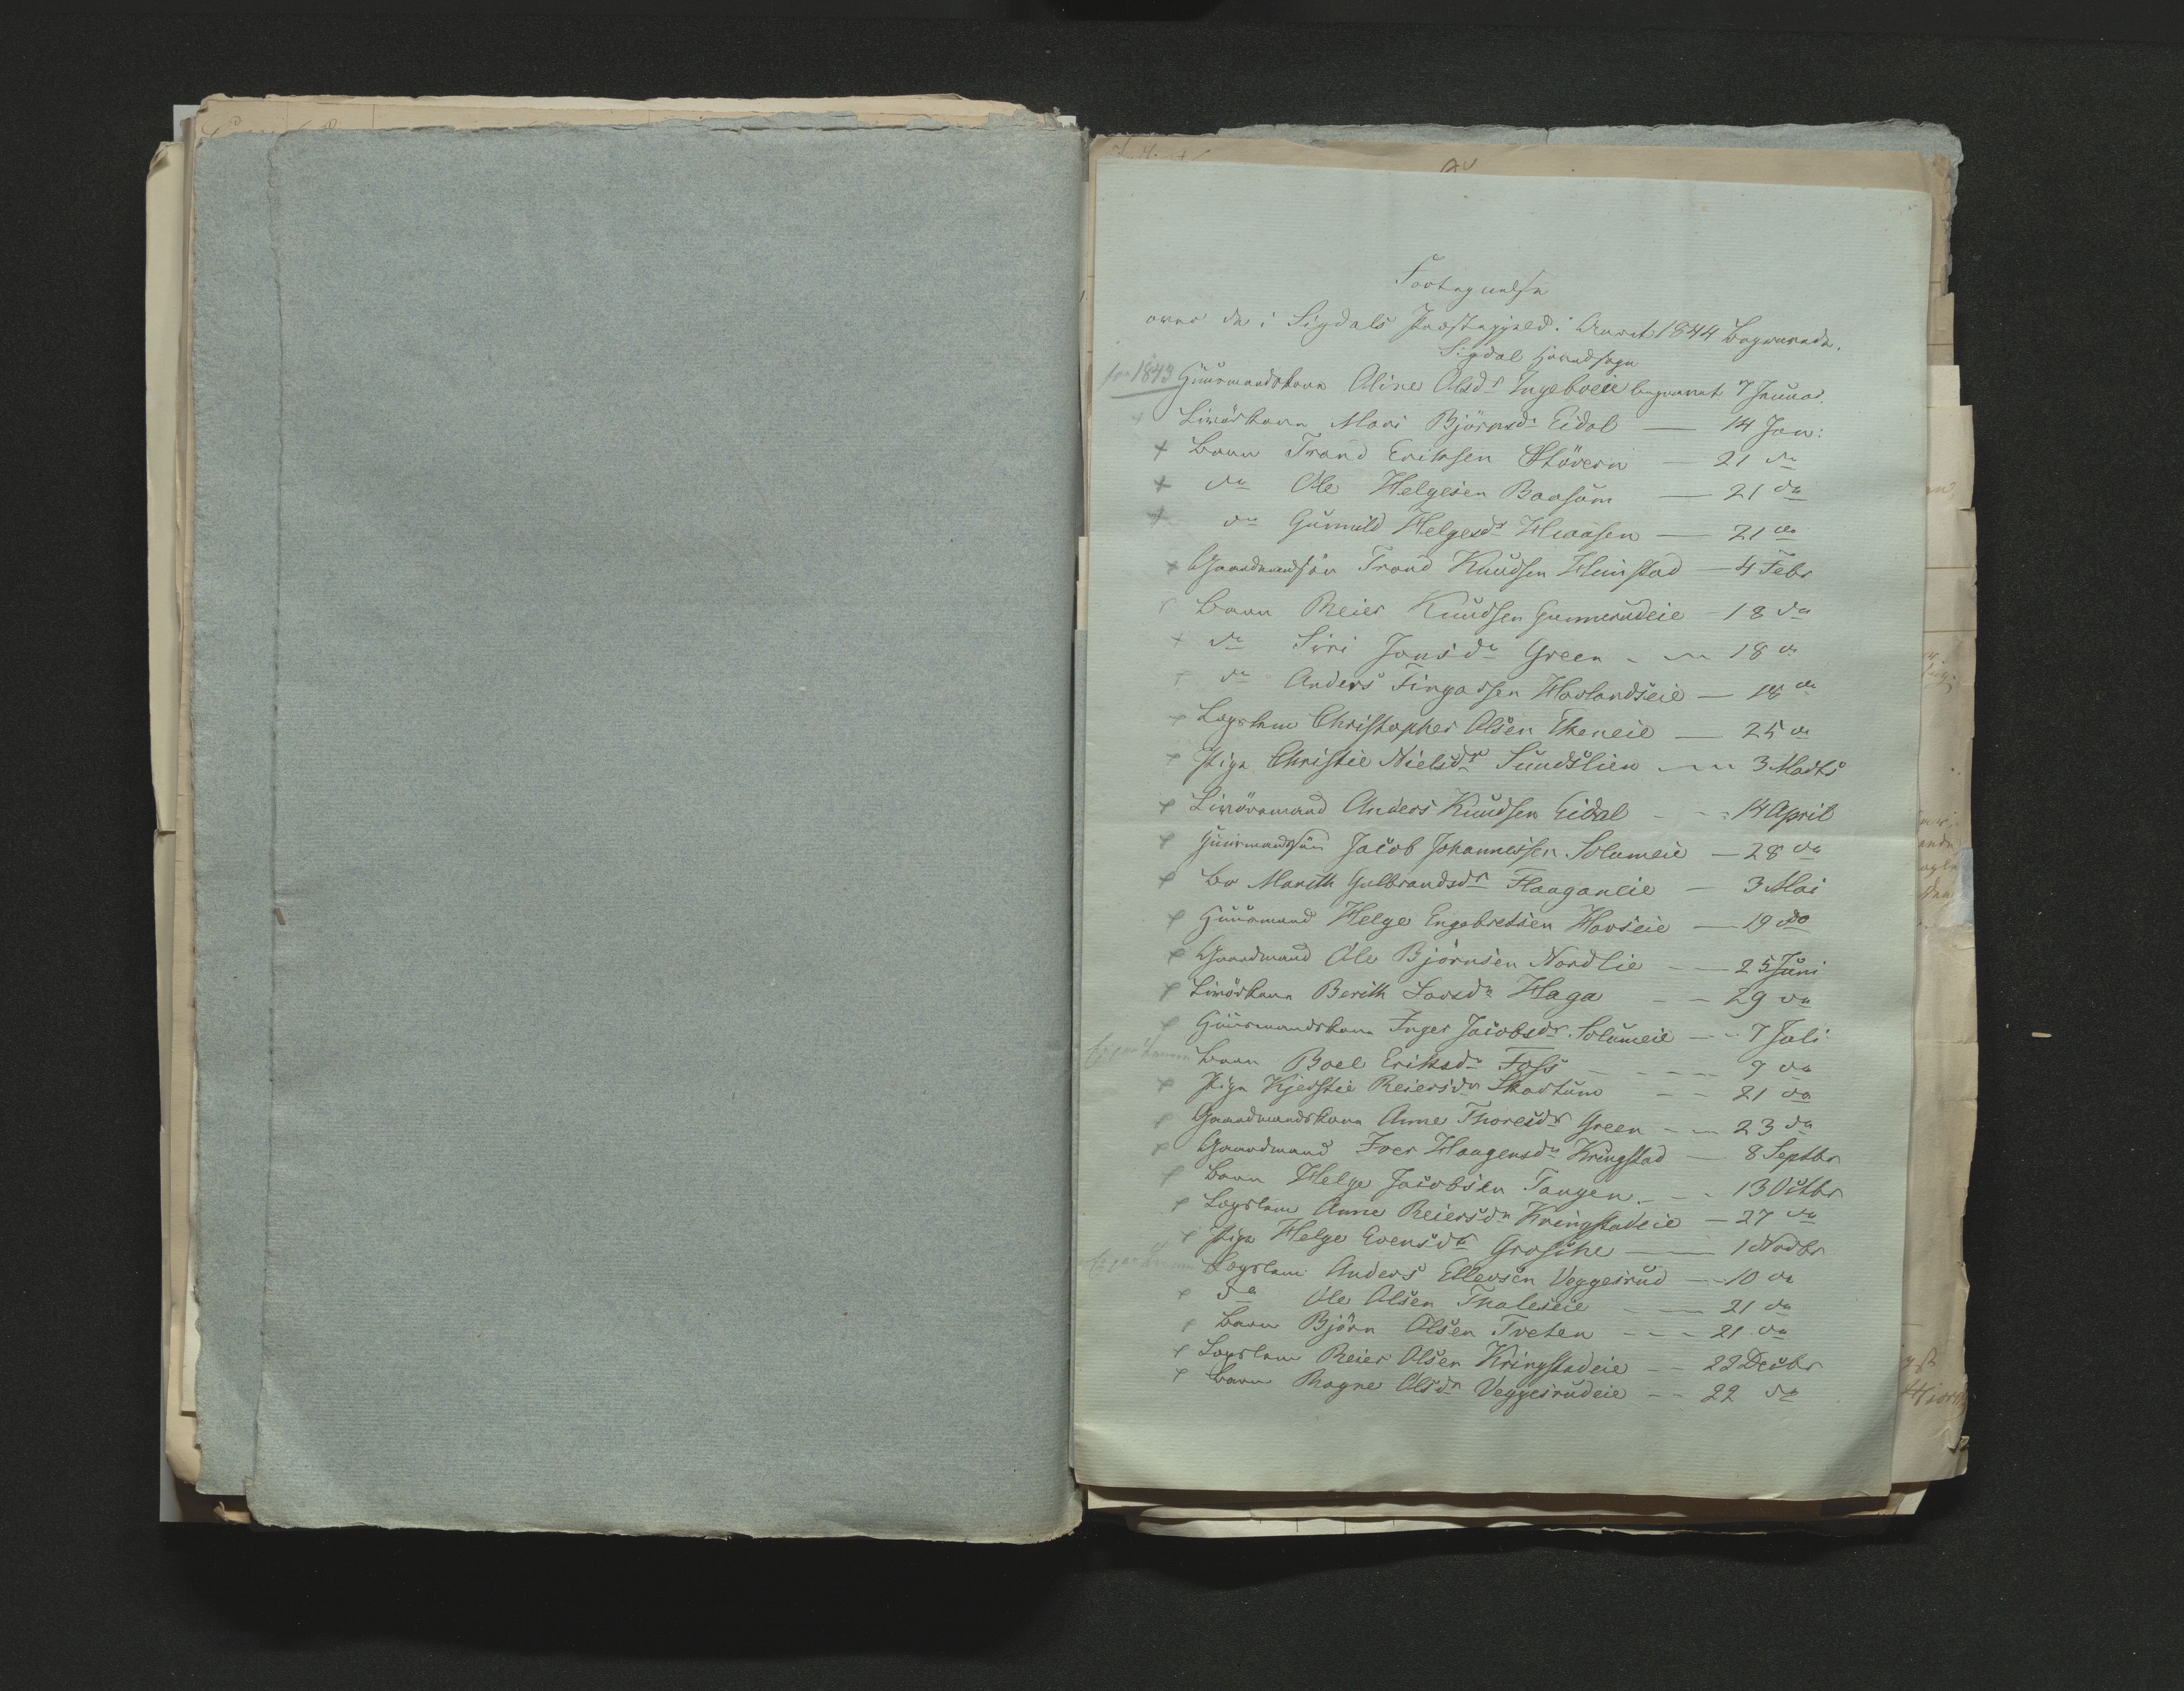 Fortegnelse
over de i Sigdals Præstegjeld i Aaret 1844 Begravede.
Sigdal Hovedsogn
for 1843 Huusmandskone Oline Olsdr Ingeboeie begravet 7 Januar.
Livörkone Mari Björnsdr Eidal — 14 Jan:
+ Barn Trond Eriksen Stövern — 21 do
+ do Ole Helgesen Baasum — 21 do
+ do Gunnild Helgesdr Hiaasen — 21 do
+ Gaardmandsön Trond Knudsen Heimstad — 4 Febr
Barn Reier Knudsen Gunnerudeie — 18 do
+ do Siri Jonsdr Green — 18 do
+ do Anders Fingarsen Hovlandseie — 18 do
+ Lægslem Christopher Olsen Theneie — 25 do
+ Pige Christie Nielsdr Sundslien — 3 Marts
+ Livörsmand Anders Knudsen Eidal — 14 April
+ Huusmandssön Jacob Johannessen Solumeie — 28 do
+ Marith Gulbrandsdr Haaganeie — 3 Mai
+ Huusmand Helge Engebretsen Hovseie — 19 do
+ Gaardmand Ole Björnsen Nordlie — 25 Juni
+ Livörkone Berith Larsdr Haga — 29 do
+ Huusmandskone Inger Jacobsdr Solumeie — 7 Juli
Barn Boel Eriksdr Foss — 9 do
+ Pige Kjerstie Reiersdr Skartum — 21 do
+ Gaardmandskone Anne Thoresdr Green — 23 do
+ Gaardmand Iver Haagensdr Kringstad — 8 Septbr
+ Barn Helge Jacobsen Tangen — 13 Octbr
+ Lægslem Anne Reiersdr Kringstadeie — 27 do
+ Pige Helge Evensdr Grosche — 1 Novbr
Lægslem Anders Ellevsen Veggesrud — 10 do
+ do Ole Olsen Thaleseie — 21 do
+ Barn Björn Olsen Tveten — 21 do
+ Lægslem Reier Olsen Kringstadeie — 22 Decbr
+ Barn Ragne Olsdr Veggesrudeie — 22 do